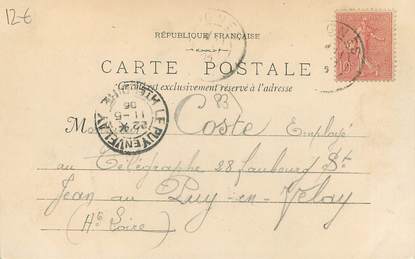 12€
RÉPUBLIQUE FRANÇAISE
CARTE POSTALE
Ce côté est exclusivement réservé à l'adresse
83
M Coste Employé
au Télégraphe 28 faubourg St
Jean au Puy-en-Velay
(Hte Loire)
LE PUY EN VELAY
11-5
22
05
HTE LOIRE
10